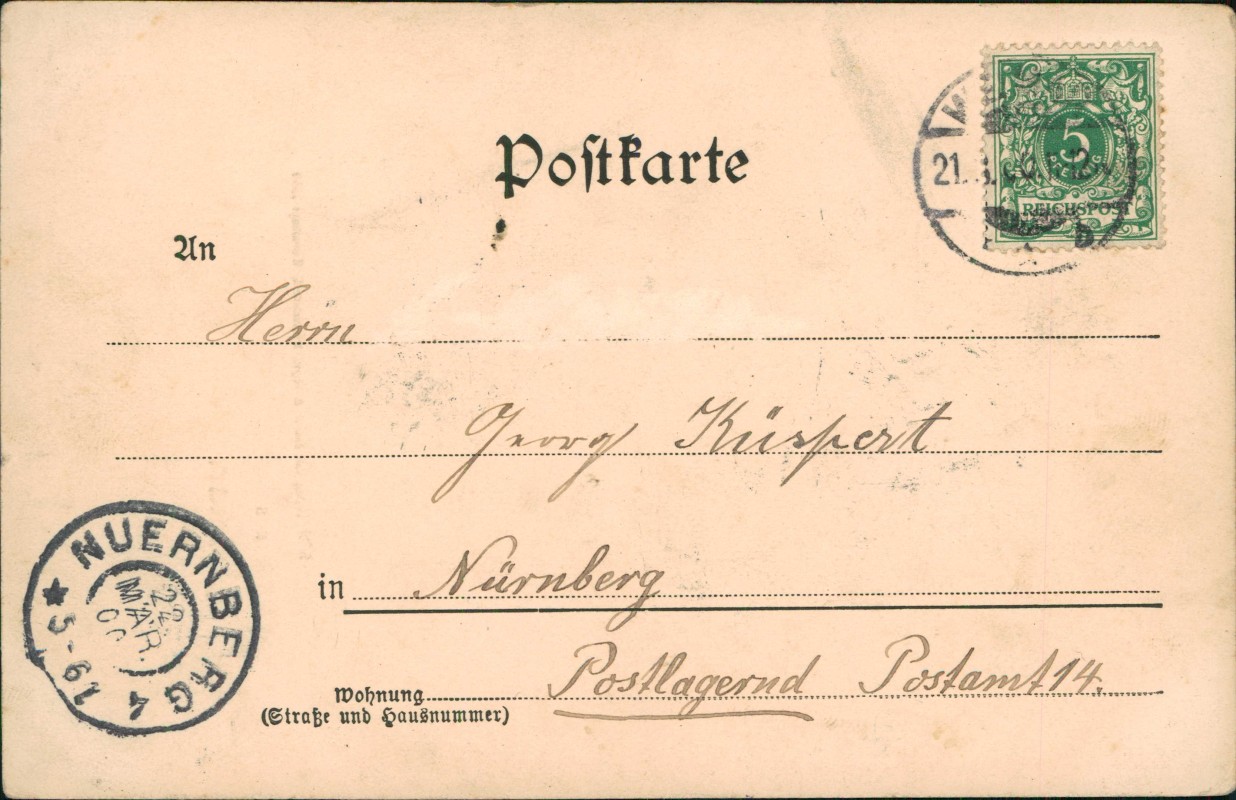 Postkarte
5
PFENNIG
REICHSPOST
21. 3. 00. 12
b
An
Herrn
Georg Küspert
in Nürnberg
Wohnung Postlagernd Postamt 14.
(Straße und Hausnummer)
NUERNBERG 4
22.
MAR.
00
5-6